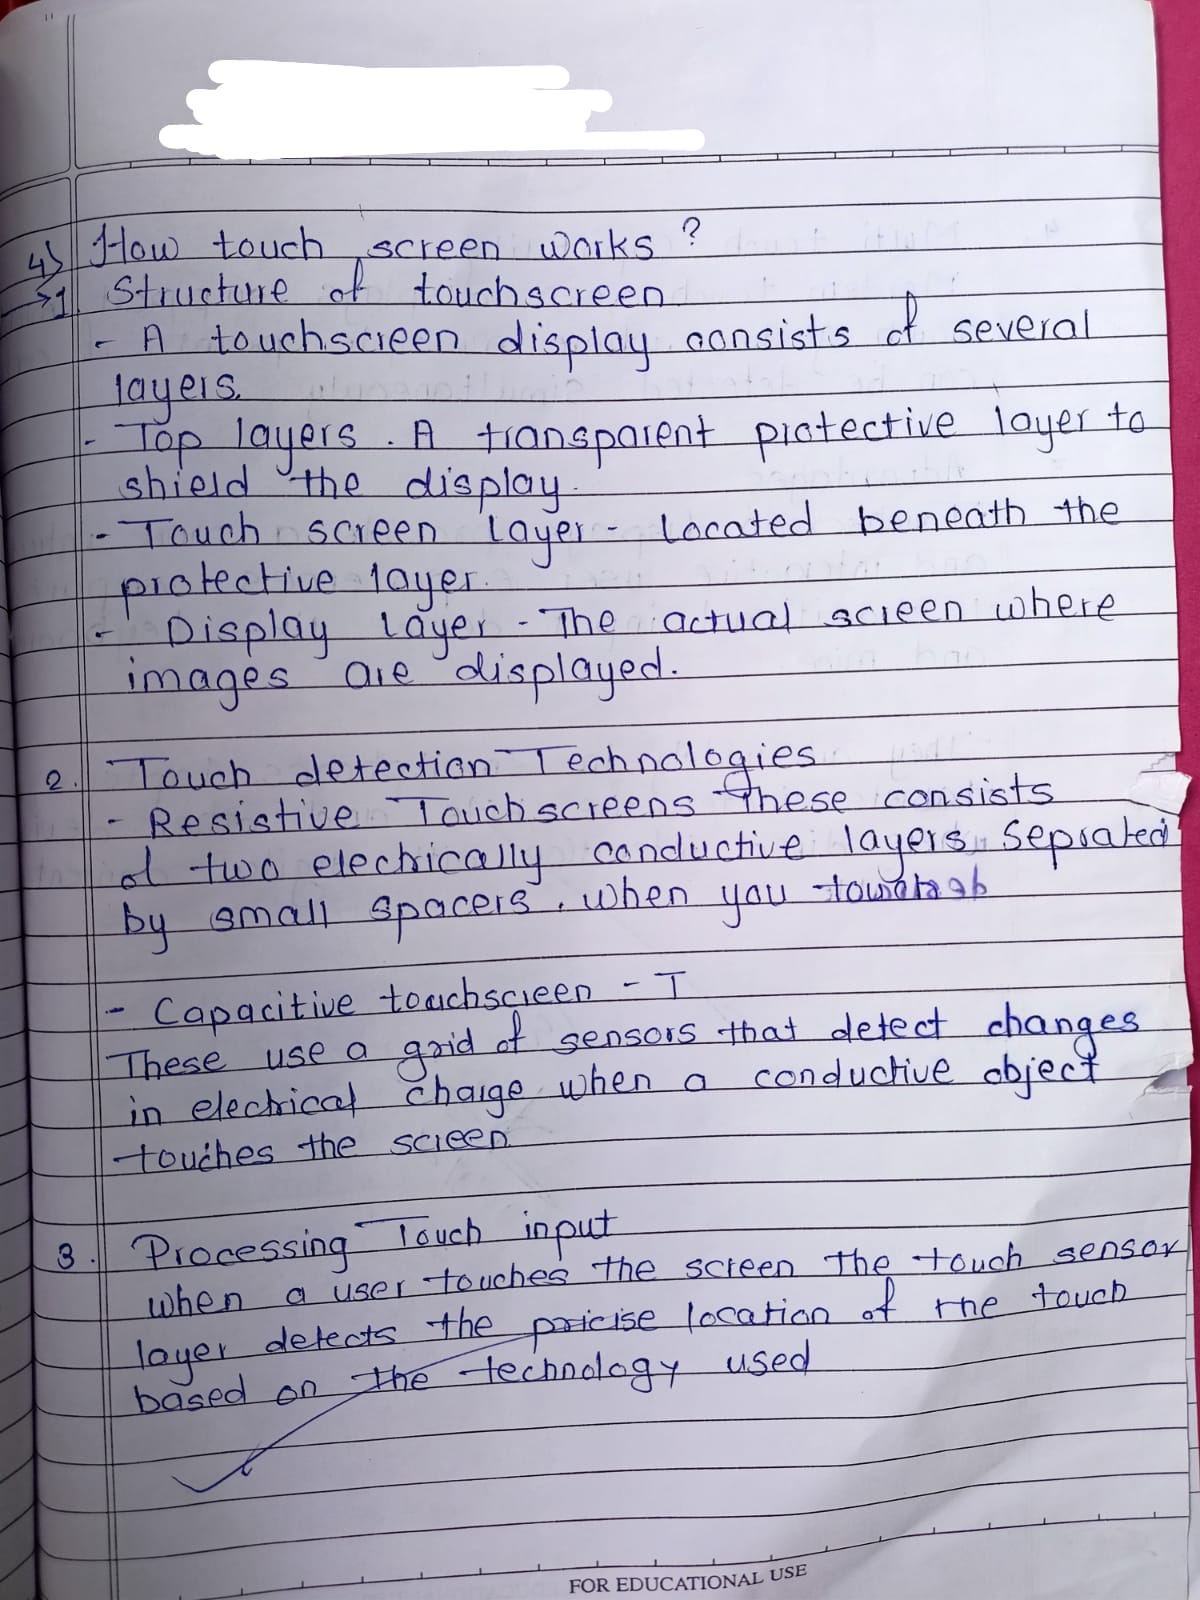 4) How touch screen works ?
→1. Structure of touchscreen
- A touchscreen display consists of several
layers.
- Top layers . A transparent protective layer to
shield the display.
- Touch screen Layer - Located beneath the
protective layer.
- Display layer - The actual screen where
images are displayed.
2. Touch detection Technologies
- Resistive Touchscreens These consists
of two electrically conductive layers, Seprated
by small spacers. when you
- Capacitive touchscreen - T
These use a grid of sensors that detect changes
in electrical charge when a conductive object
touches the screen
3. Processing Touch input
when a user touches the screen the touch sensor
layer detects the pricise location of the touch
based on the technology used
FOR EDUCATIONAL USE